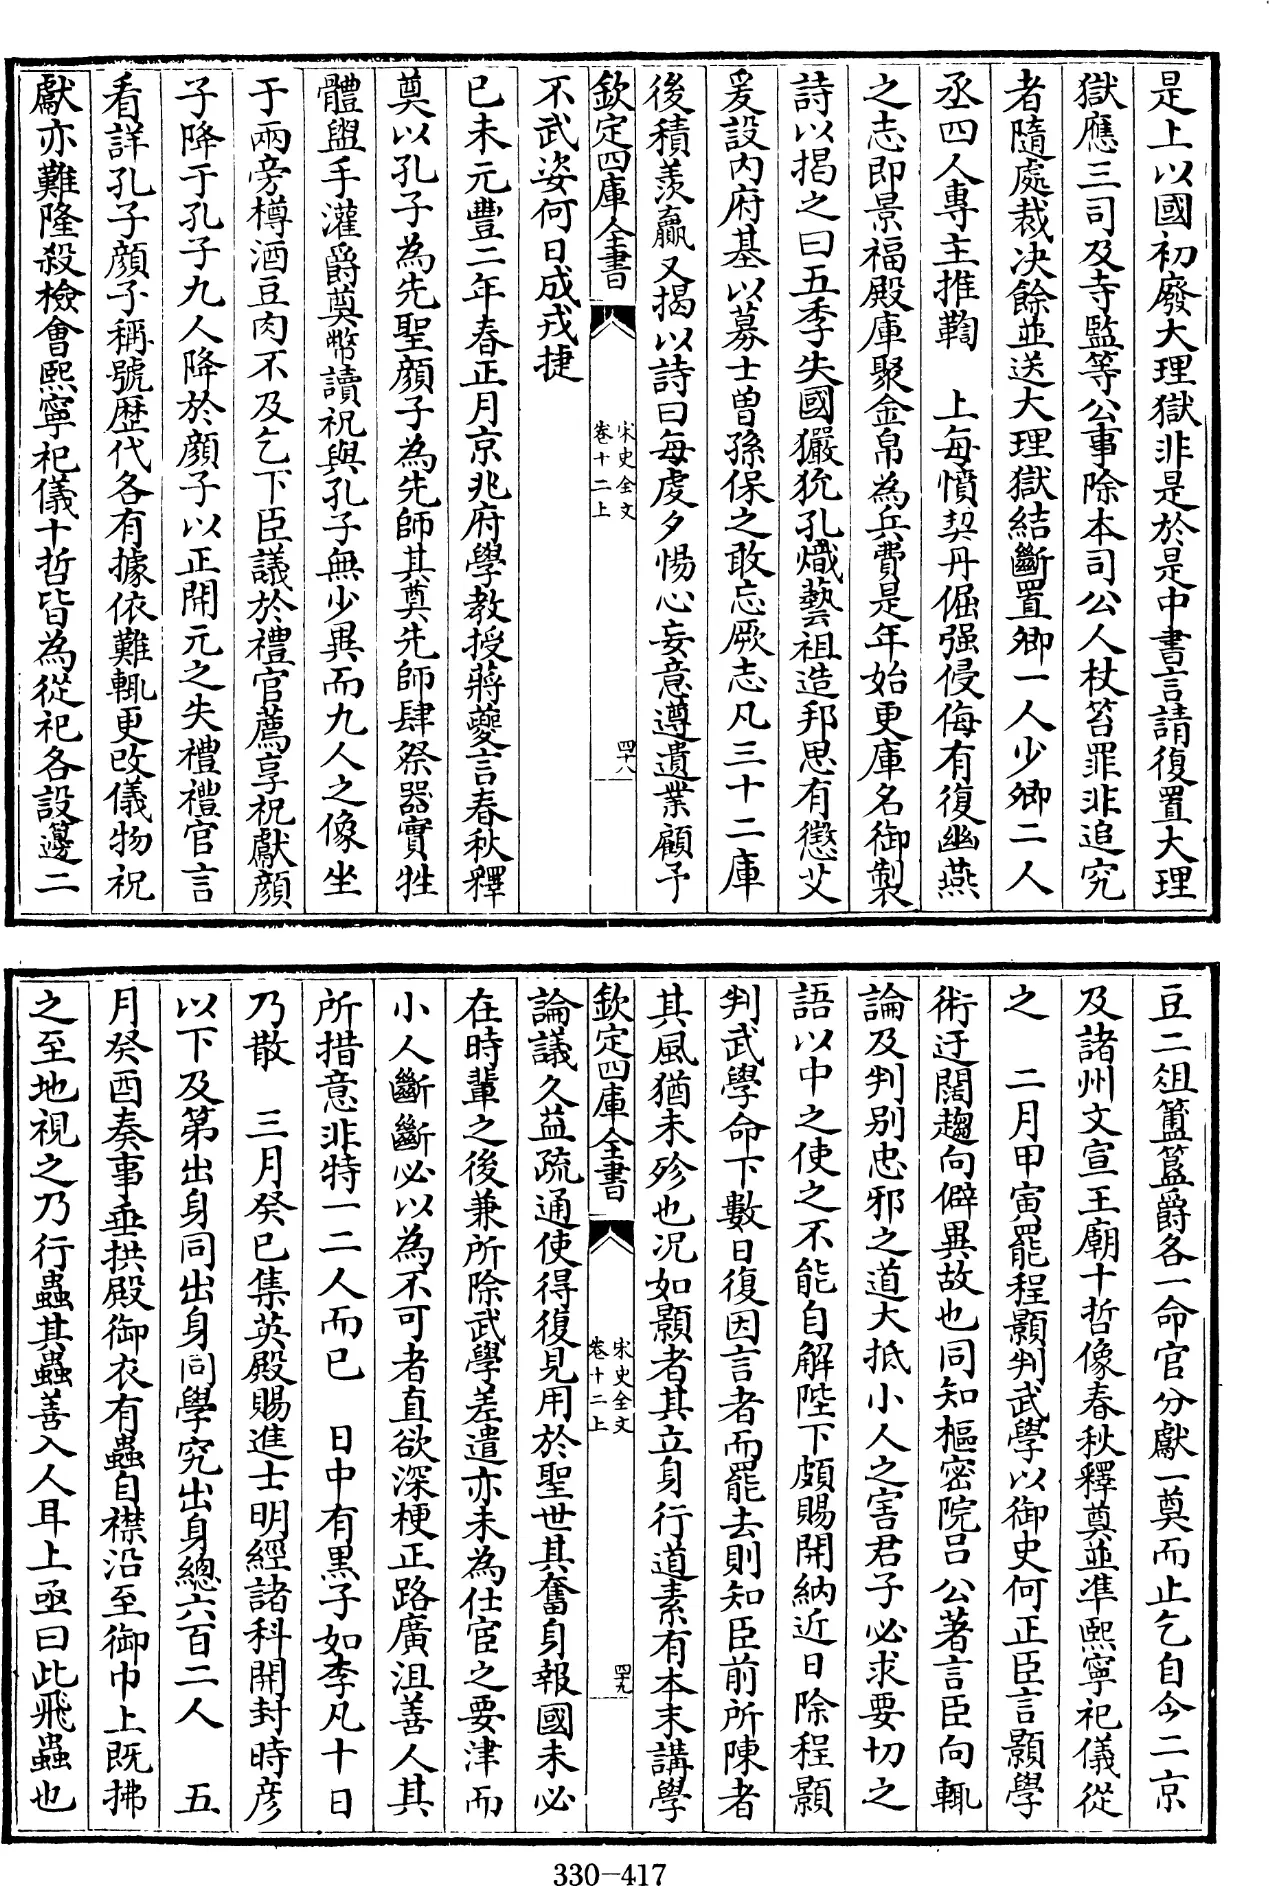 是上以國初廢大理獄非是於是中書言請復置大理
獄應三司及寺監等公事除本司公人杖笞罪非追究
者隨處裁決餘並送大理獄結斷置卿一人少卿二人
丞四人專主推鞫　上每憤契丹倔强侵侮有復幽燕
之志即景福殿庫聚金帛為兵費是年始更庫名御製
詩以揭之曰五季失國玁狁孔熾藝祖造邦思有懲艾
爰設内府基以募士曽孫保之敢忘厥志凡三十二庫
後積羨贏又揭以詩曰每虔夕惕心妄意遵遺業顧予
欽定四庫全書
宋史全文
卷十二上
四十八
不武姿何日成戎捷
已未元豐二年春正月京兆府學教授蔣夔言春秋釋
奠以孔子為先聖顔子為先師其奠先師肆祭器實牲
體盥手灌爵奠幣讀祝與孔子無少異而九人之像坐
于兩旁樽酒豆肉不及乞下臣議於禮官薦享祝獻顔
子降于孔子九人降於顔子以正開元之失禮禮官言
看詳孔子顔子稱號歴代各有據依難輒更改儀物祝
獻亦難隆殺檢會熙寧祀儀十哲皆為從祀各設籩二
豆二俎簠簋爵各一命官分獻一奠而止乞自今二京
及諸州文宣王廟十哲像春秋釋奠並準熙寧祀儀從
之　二月甲寅罷程顥判武學以御史何正臣言顥學
術迂闊趨向僻異故也同知樞密院吕公著言臣向輒
論及判别忠邪之道大抵小人之害君子必求要切之
語以中之使之不能自解陛下頗賜開納近日除程顥
判武學命下數日復因言者而罷去則知臣前所陳者
其風猶未殄也况如顥者其立身行道素有本末講學
欽定四庫全書
宋史全文
卷十二上
四十九
論議久益疏通使得復見用於聖世其奮身報國未必
在時輩之後兼所除武學差遣亦未為仕宦之要津而
小人斷斷必以為不可者直欲深梗正路廣沮善人其
所措意非特一二人而已　日中有黒子如李凡十日
乃散　三月癸巳集英殿賜進士明經諸科開封時彦
以下及第出身同出身同學究出身總六百二人　五
月癸酉奏事垂拱殿御衣有蟲自襟沿至御巾上既拂
之至地視之乃行蟲其蟲善入人耳上亟曰此飛蟲也
330-417